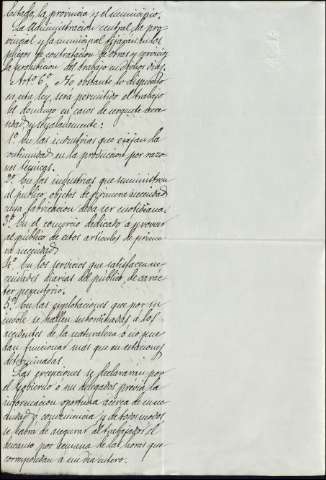 Estado, la provincia y el municipio.
La Administración central, la pro-
vincial y la municipal fijarán en los
pliegos de contratación de obras y servicios
la prohibición del trabajo en dichos días.
Artº 6º No obstante lo dispuesto
en esta ley, será permitido el trabajo
los domingos en casos de urgente nece-
sidad, y legalmente:
1º En las industrias que exijan la
continuidad en la producción por razo-
nes técnicas.
2º En las industrias que suministren
al público, objetos de primera necesidad
cuya fabricación deba ser cuotidiana.
3º En el comercio dedicado a proveer
al público de estos artículos de prime-
ra necesidad.
4º En los servicios que satisfacen ne-
cesidades diarias del público, de carác-
ter perentorio.
5º En las explotaciones que por su
índole se hallan subordinadas a los
accidentes de la naturaleza ó no pue-
dan funcionar mas que en estaciones
determinadas.
Las excepciones se declararán por
el Gobierno o sus delegados previa la
información oportuna acerca de su ne-
cesidad y conveniencia y de todos modos
se habrá de asegurar al trabajador el
descanso por semana de las horas que
correspondan a un día entero.